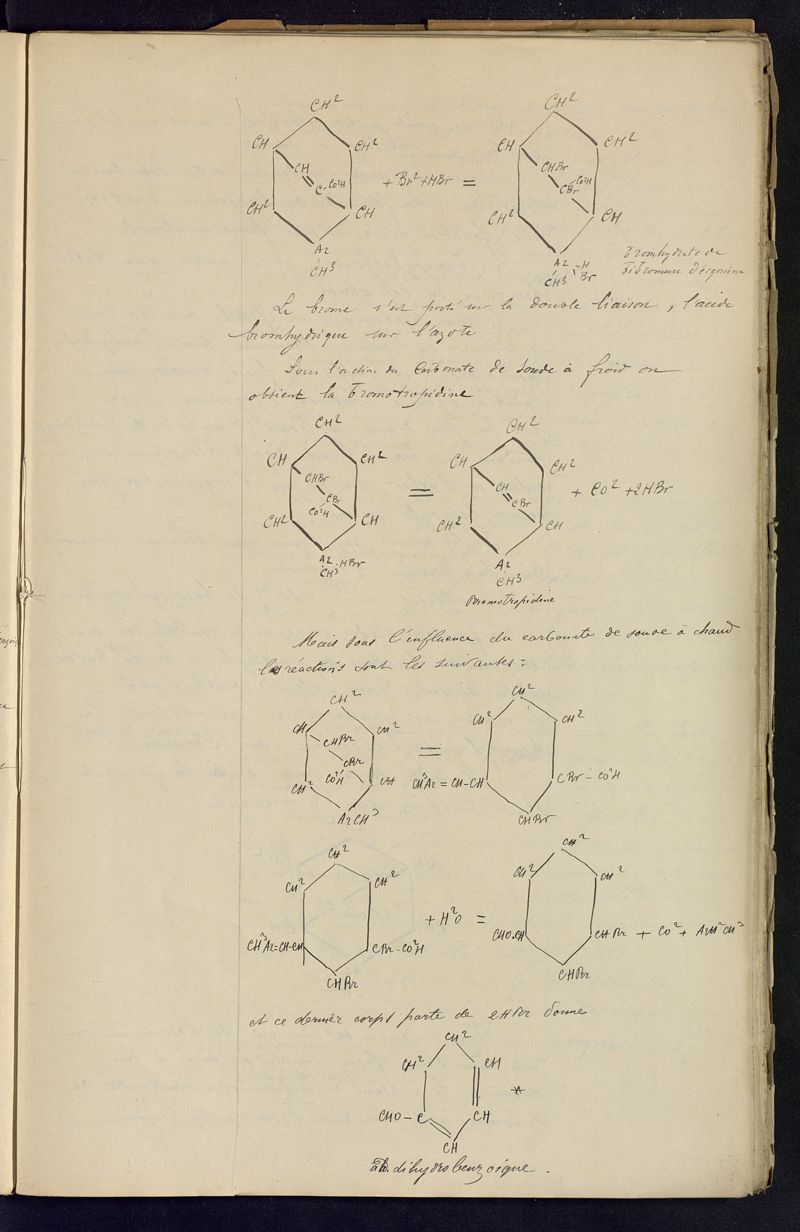 CH²
CH CH²
CH
C CO²H
CH² CH
Az
CH³
+ Br² + HBr =
CH²
CH CH²
CHBr
CBr CO²H
CH² CH
Az H
CH³ Br
Bromhydrate de
Bibromure d'ecgonine
Le brome s'est porté sur la double liaison, l'acide
bromhydrique sur l'azote
Sous l'action du Carbonate de soude à froid on
obtient la Bromotropidine
CH²
CH CH²
CHBr
CBr
CO²H
CH² CH
Az.HBr
CH³
=
CH²
CH CH²
CH
CBr
CH² CH
Az
CH³
+ CO² + 2HBr
Bromotropidine
Mais sous l'influence du carbonate de soude à chaud
les réactions sont les suivantes :
CH²
CH CH²
CHBr
CBr
CO²H
CH² CH
AzCH³
=
CH²
CH² CH²
CH³Az = CH-CH CBr - CO²H
CHBr
CH²
CH² CH²
CH³Az=CH-CH CBr-CO²H
CHBr
+ H²O =
CH²
CH² CH²
CHO.CH CHBr + CO² + AzH²CH³
CHBr
et ce dernier corps perte de 2HBr donne
CH²
CH² CH
CHO - C CH
CH
*
ald. dihydrobenzoïque.